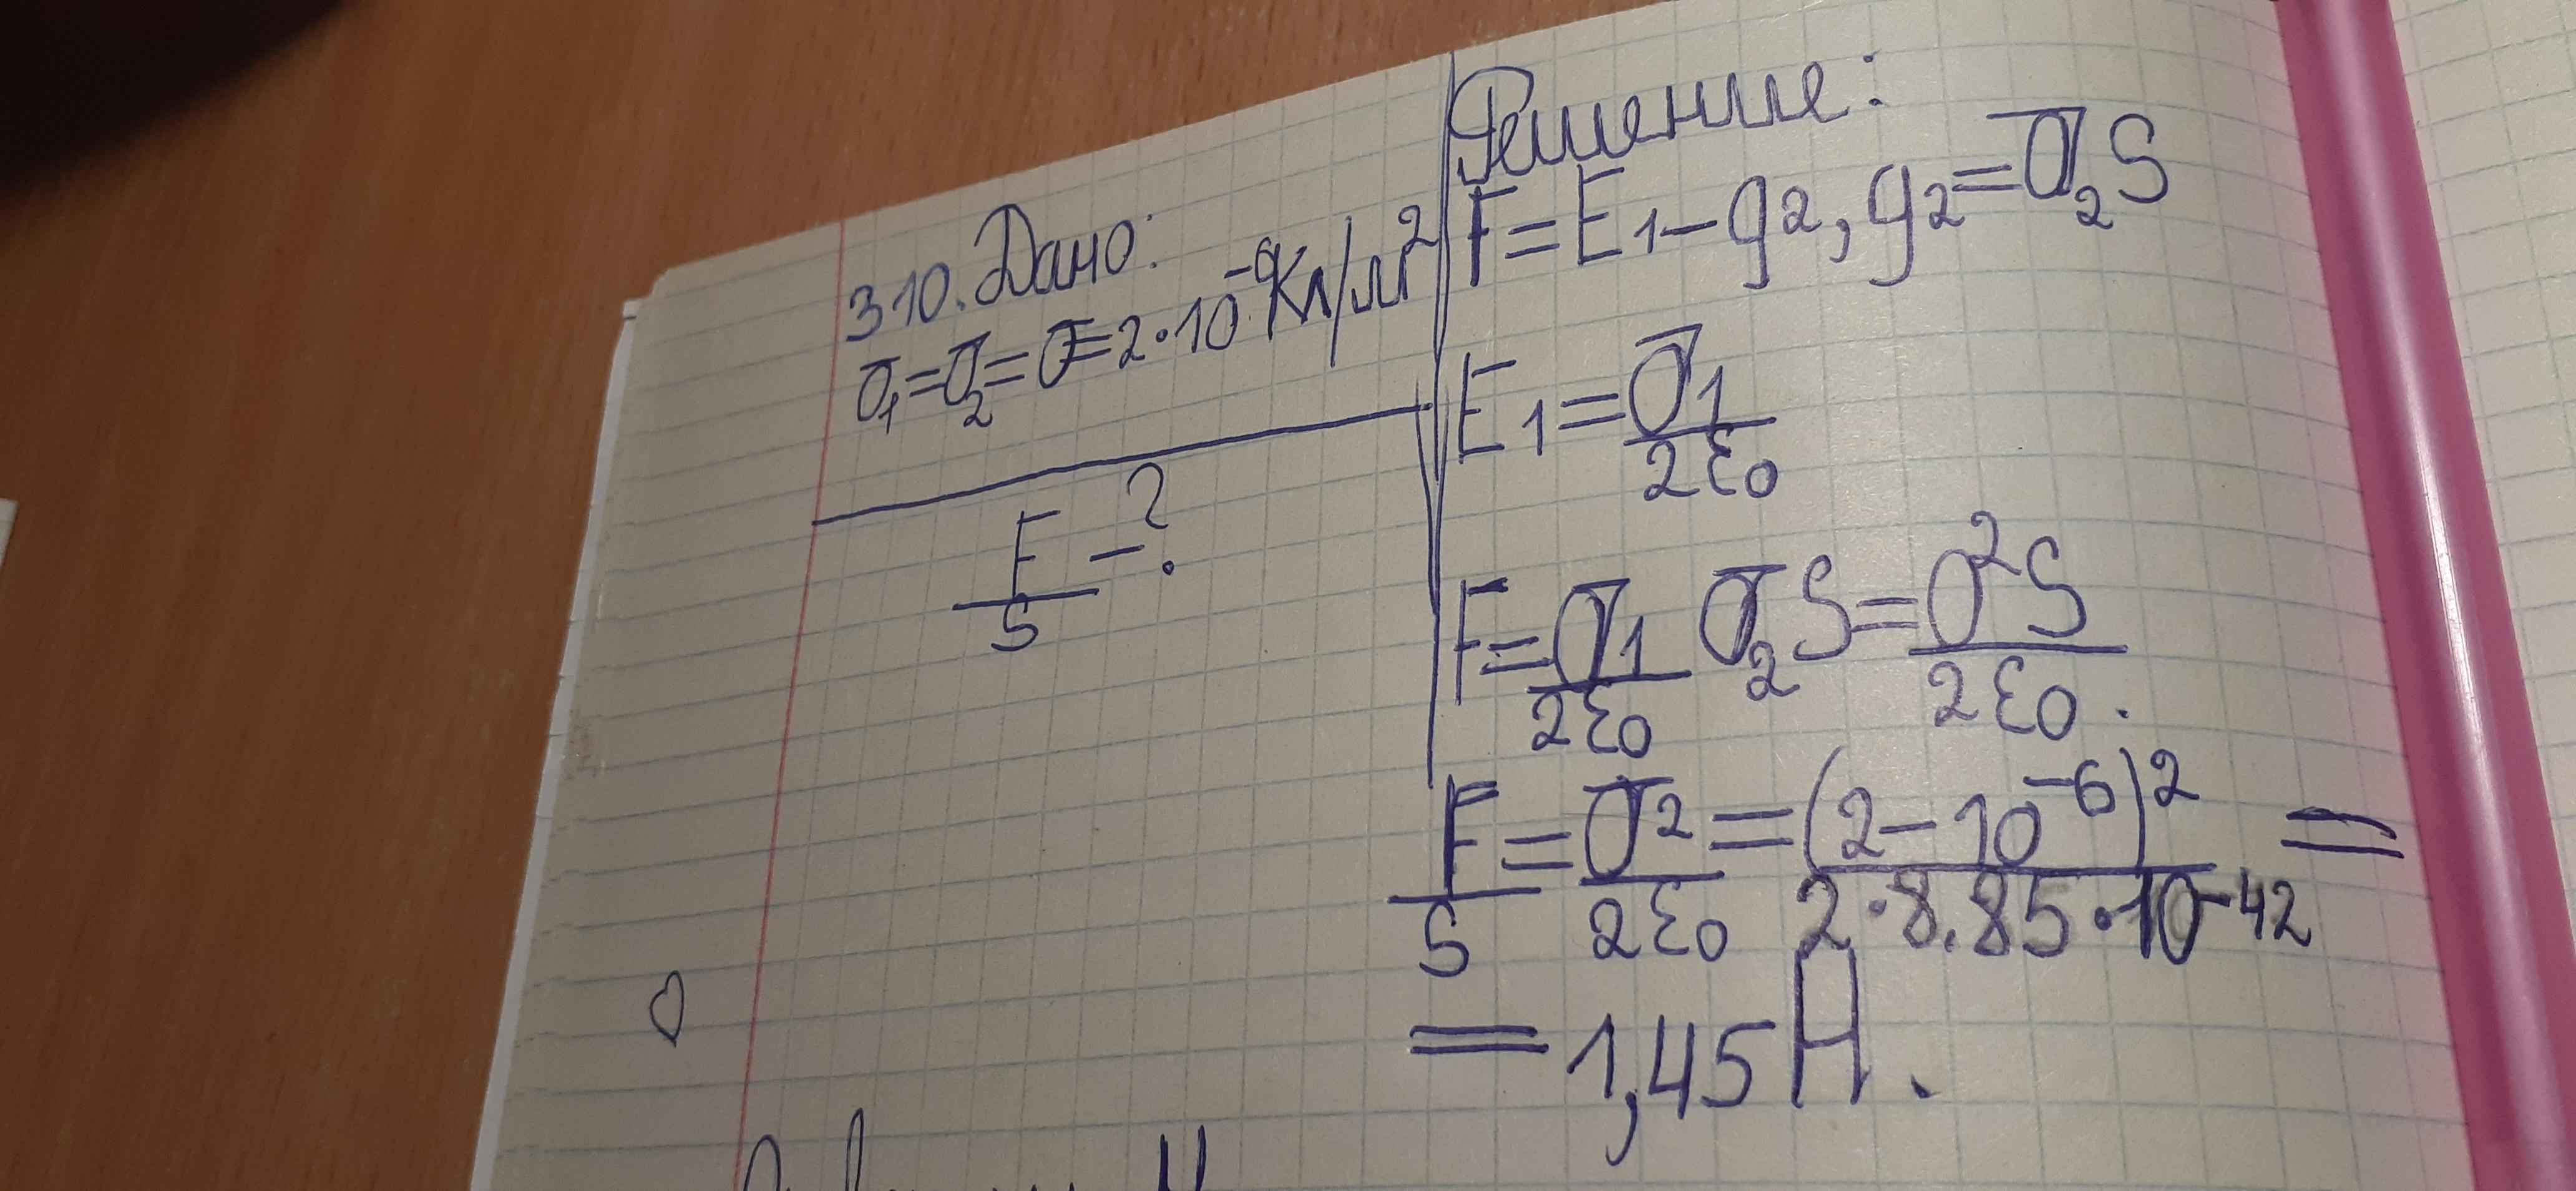 310. Дано:
σ₁=σ₂=σ=2·10⁻⁶Кл/м²
F/S – ?
Решение:
F=E₁–q₂, q₂=σ₂S
E₁=σ₁/2ε₀
F=σ₁/2ε₀ σ₂S=σ²S/2ε₀.
F/S=σ²/2ε₀=(2–10⁻⁶)²/2·8.85·10⁻¹²=
=1,45Н.